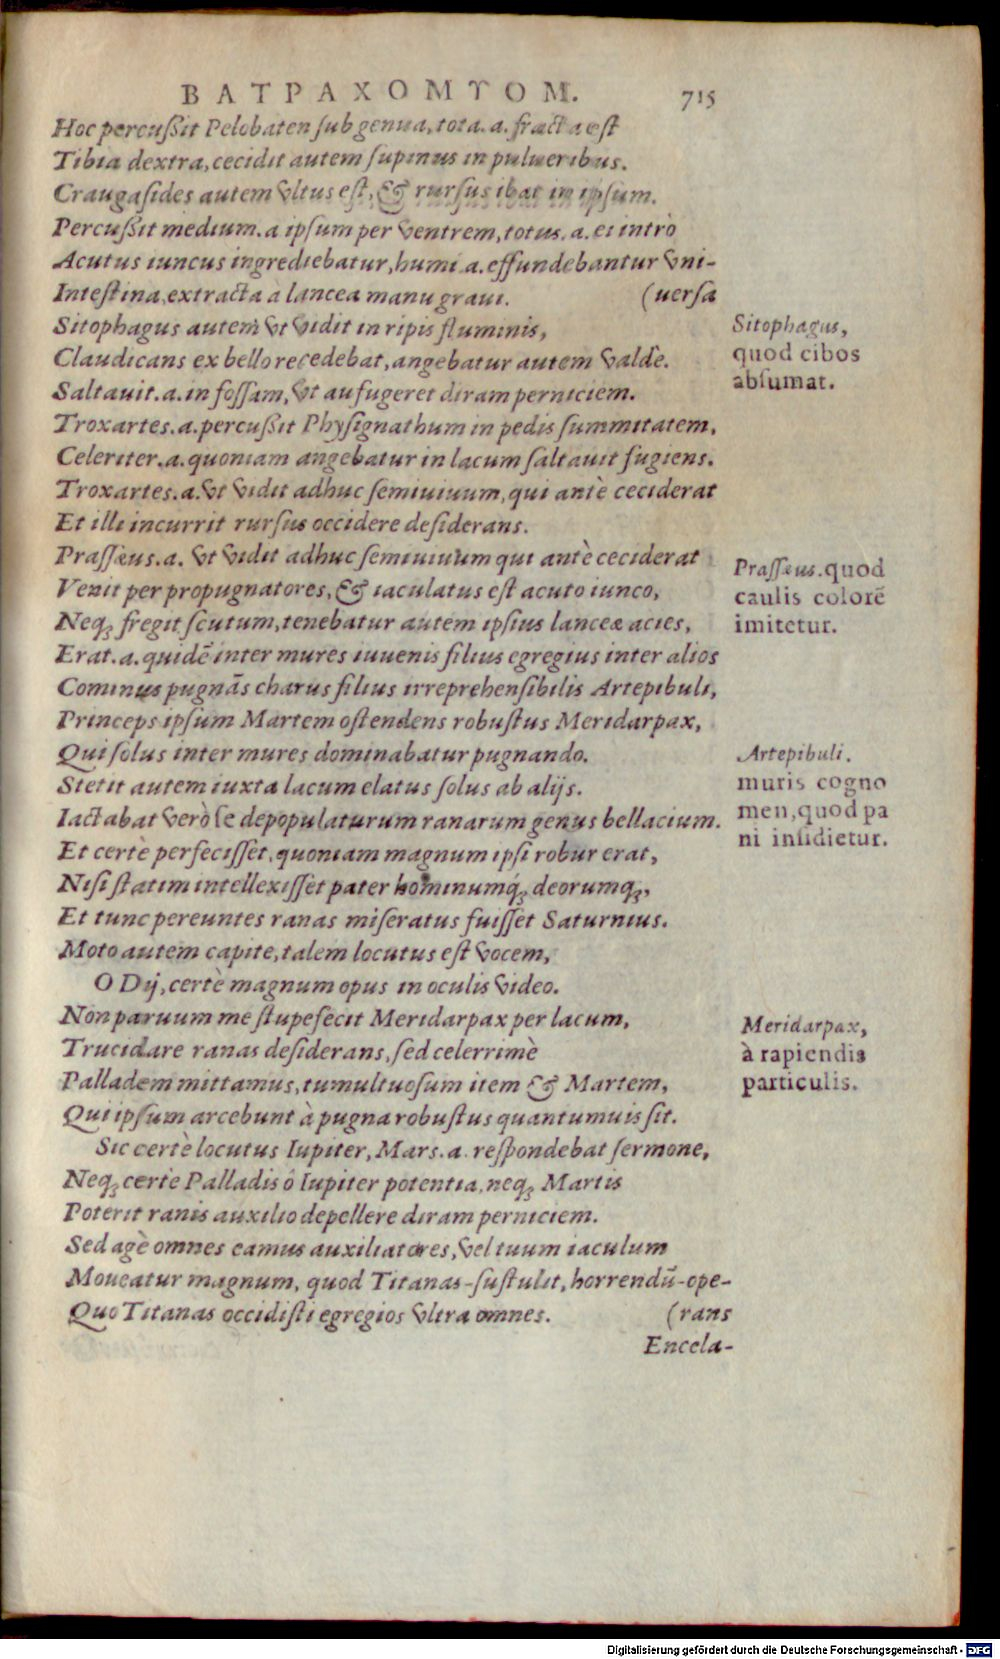 ΒΑΤΡΑΧΟΜΥΟΜ. 715
Hoc percußit Pelobaten sub genua, tota.a. fracta est
Tibia dextra, cecidit autem supinus in pulueribus.
Craugasides autem vltus est, & rursus ibat in ipsum.
Percußit medium.a ipsum per ventrem, totus.a. ei intrò
Acutus iuncus ingrediebatur, humi.a. effundebantur vni-
Intestina, extracta à lancea manu graui. (uersa
Sitophagus autem vt vidit in ripis fluminis,
Claudicans ex bello recedebat, angebatur autem valdè.
Saltauit.a. in fossam, vt aufugeret diram perniciem.
Troxartes.a. percußit Physignathum in pedis summitatem,
Celeriter.a. quoniam angebatur in lacum saltauit fugiens.
Troxartes.a. vt vidit adhuc semiuiuum, qui antè ceciderat
Et illi incurrit rursus occidere desiderans.
Prassæus.a. vt vidit adhuc semiuiuum qui antè ceciderat
Venit per propugnatores, & iaculatus est acuto iunco,
Neq; fregit scutum, tenebatur autem ipsius lanceæ acies,
Erat.a. quidē inter mures iuuenis filius egregius inter alios
Cominus pugnãs charus filius irreprehensibilis Artepibuli,
Princeps ipsum Martem ostendens robustus Meridarpax,
Qui solus inter mures dominabatur pugnando.
Stetit autem iuxta lacum elatus solus ab alijs.
Iactabat verò se depopulaturum ranarum genus bellacium.
Et certè perfecisset, quoniam magnum ipsi robur erat,
Nisi statim intellexisset pater hominumq́; deorumq́;,
Et tunc pereuntes ranas miseratus fuisset Saturnius.
Moto autem capite, talem locutus est vocem,
O Dij, certè magnum opus in oculis video.
Non paruum me stupefecit Meridarpax per lacum,
Trucidare ranas desiderans, sed celerrimè
Palladem mittamus, tumultuosum item & Martem,
Qui ipsum arcebunt à pugna robustus quantumuis sit.
Sic certè locutus Iupiter, Mars.a. respondebat sermone,
Neq; certè Palladis ô Iupiter potentia, neq; Martis
Poterit ranis auxilio depellere diram perniciem.
Sed agè omnes eamus auxiliatores, vel tuum iaculum
Moueatur magnum, quod Titanas sustulit, horrendū-ope-
Quo Titanas occidisti egregios vltra omnes. (rans
Encela-
Sitophagus,
quod cibos
absumat.
Prassæus. quod
caulis colorē
imitetur.
Artepibuli.
muris cogno
men, quod pa
ni insidietur.
Meridarpax,
à rapiendis
particulis.
Digitalisierung gefördert durch die Deutsche Forschungsgemeinschaft - DFG